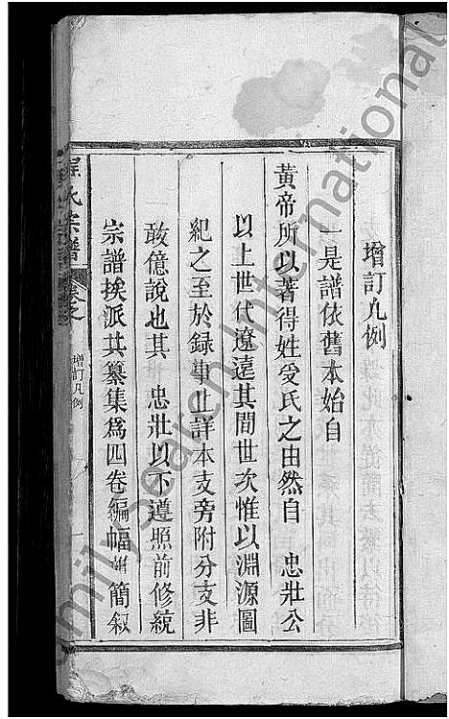 增訂凡例
一是譜依舊本始自
黃帝所以著得姓受氏之由然自 忠壯公
以上世代遼遠其間世次惟以淵源圖
紀之至於録 止詳本支旁附分支非
敢億說也其 忠壯以下遵照前修統
宗譜挨派共纂集爲四卷編幅 簡叙
程氏宗譜 卷之
增訂凡例
Family Search International